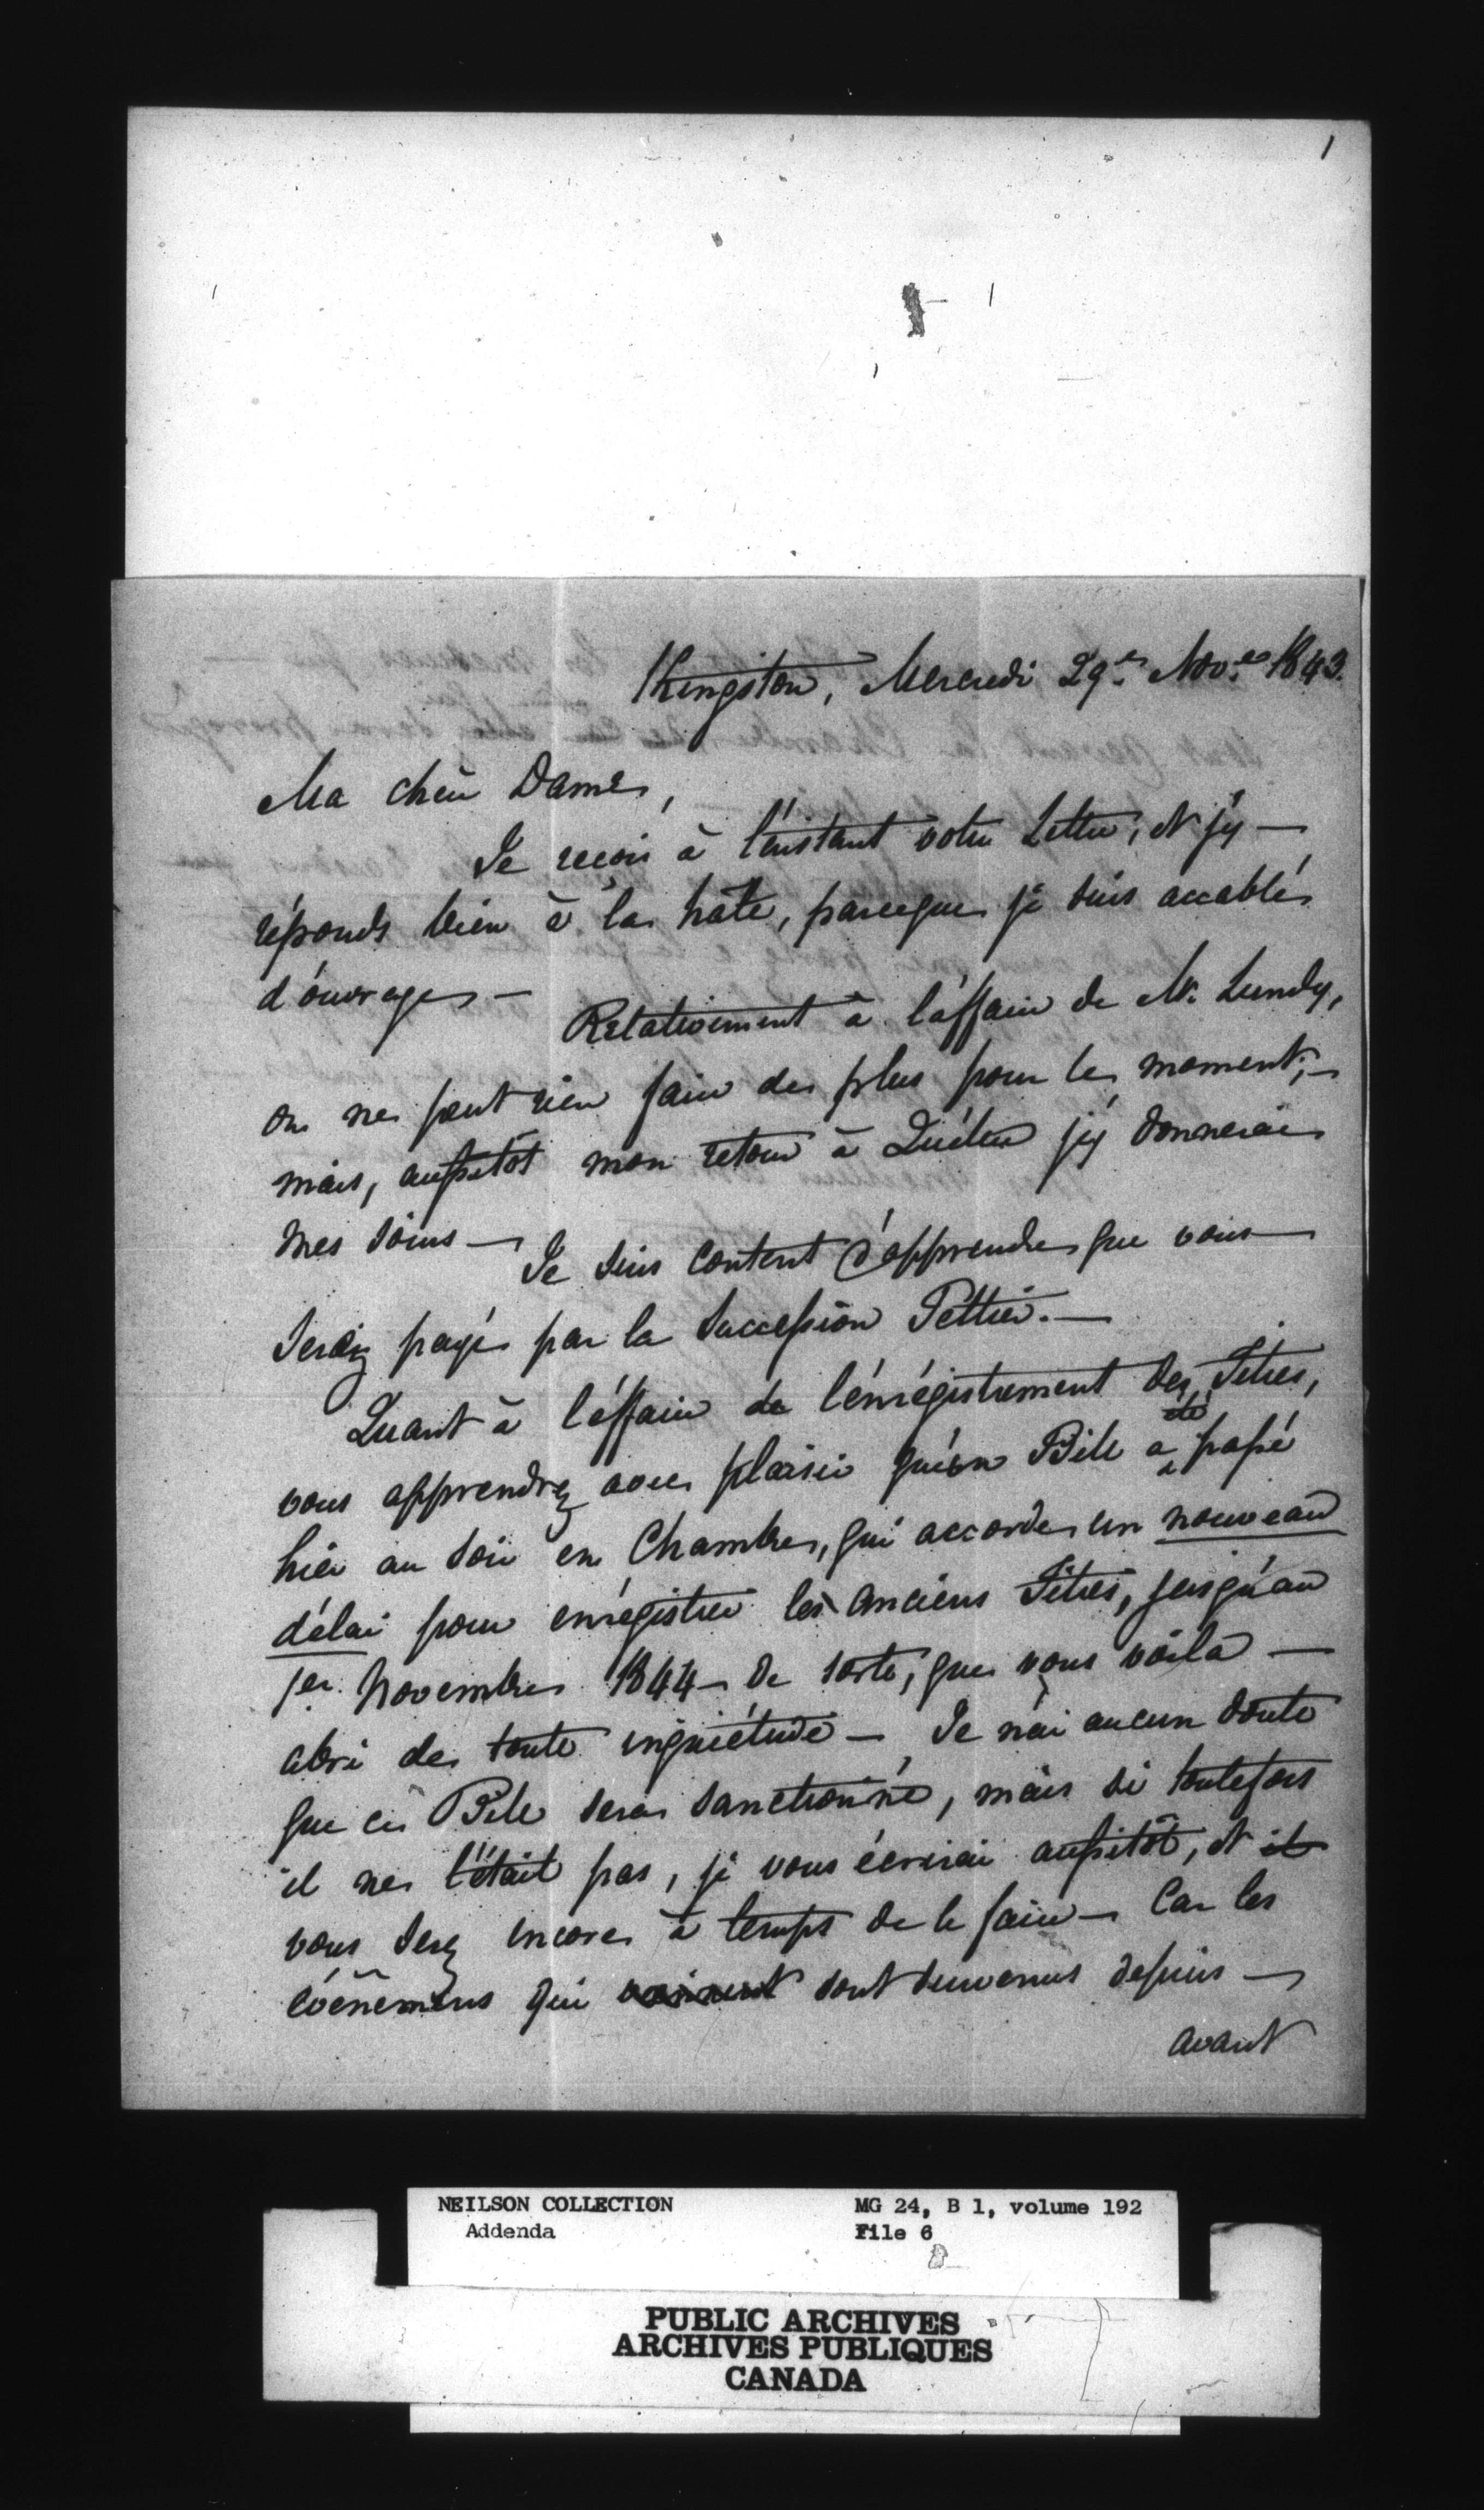 1
Kingston, Mercredi 29.e Nov.e 1843.
Ma chère Dame,
Je reçois à l'instant votre Lettre, et j'y —
réponds bien à la hâte, parceque je suis accablé
d'ouvrage —
Relativement à l'affaire de Mr. Lundy,
on ne peut rien faire de plus pour le moment; —
mais, aussitôt mon retour à Québec j'y donnerai
mes soins —
Je suis content d'apprendre que vous —
serez payé par la Succession Pettier. —
Quant à l'affaire de l'enrégistrement des Titres,
vous apprendrez avec plaisir qu'un Bill a été passé
hier au soir en Chambre, qui accorde un nouveau
délai pour enrégistrer les anciens Titres, jusqu'au
1er. Novembre 1844 — de sorte, que vous voilà —
abri de toute inquiétude — Je n'ai aucun doute
que ce Bill sera sanctionné, mais si toutefois
il ne l'était pas, je vous écrirai aussitôt, et il
vous serez encore à temps de le faire — Car les
évênemens qui sont survenus depuis —
avant
NEILSON COLLECTION
Addenda
MG 24, B 1, volume 192
File 6
PUBLIC ARCHIVES
ARCHIVES PUBLIQUES
CANADA